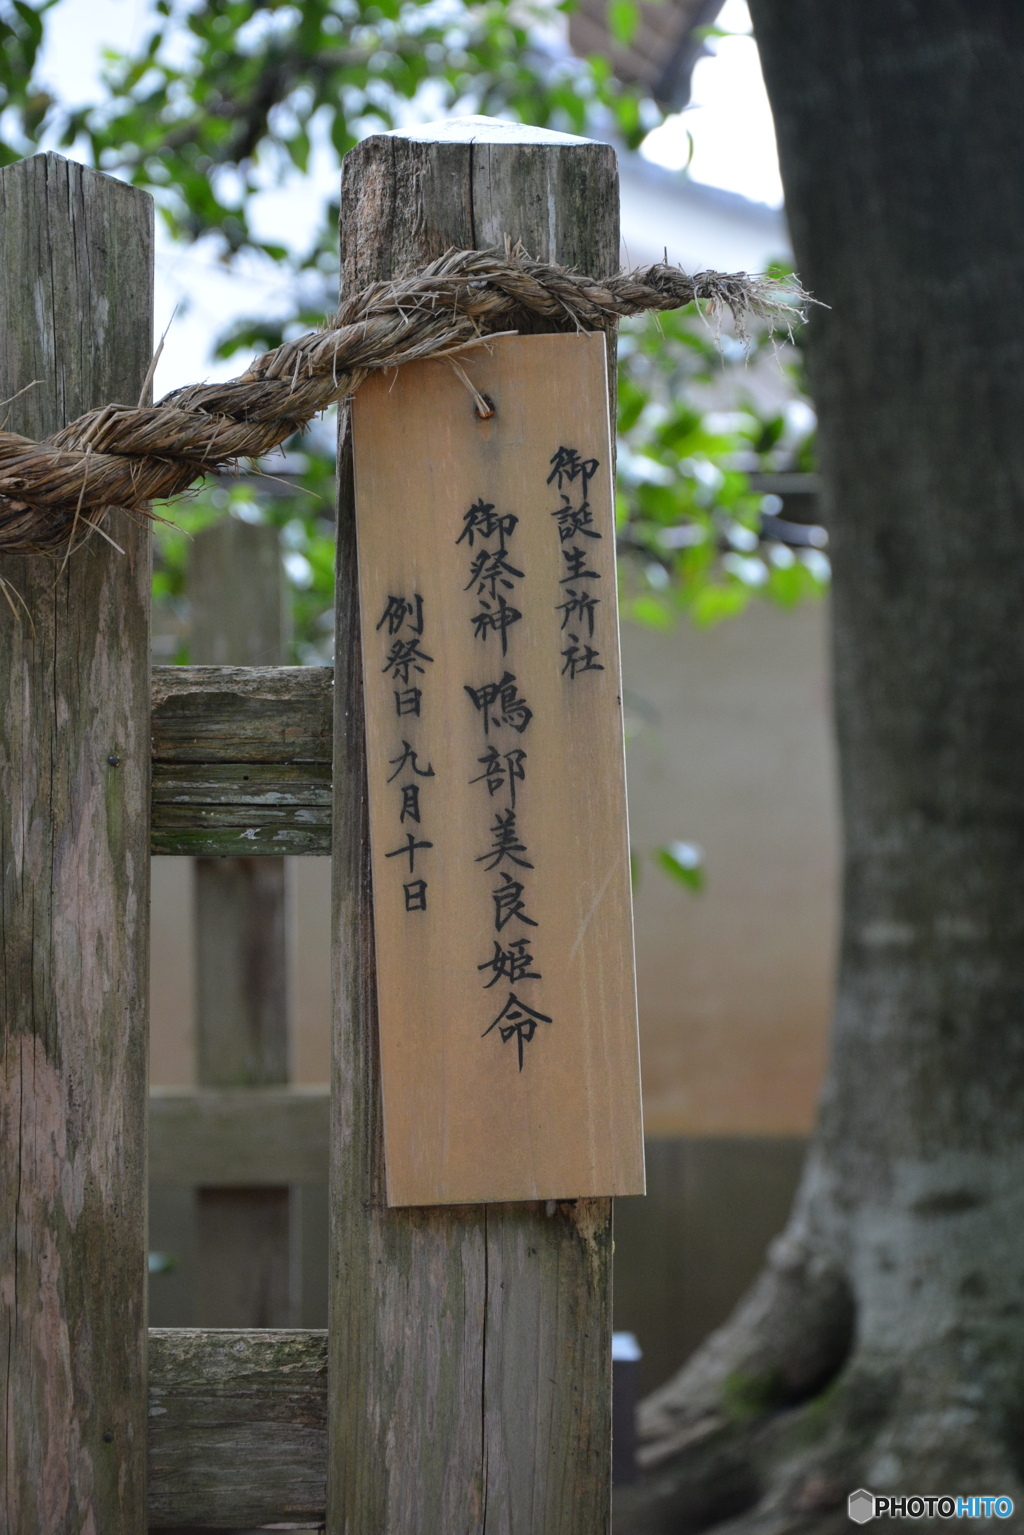 御誕生所社
御祭神 鴨部美良姫命
例祭日 九月十日
PHOTOHITO